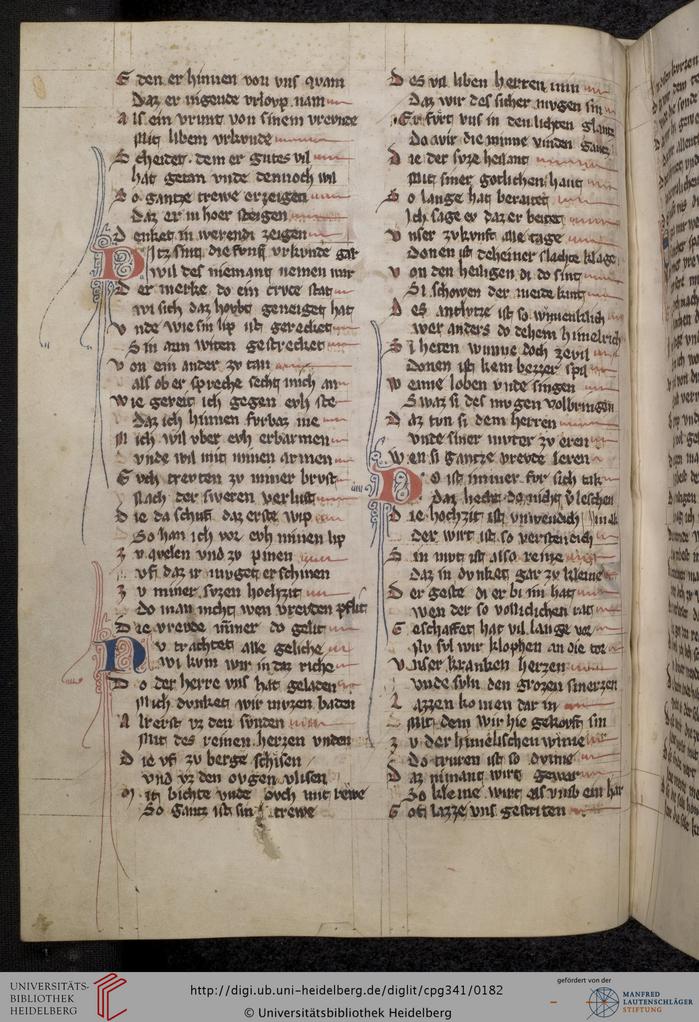 E den er hinnen von vns qvam
Daz er nigende vrlovp nam
Als ein vrunt von sinem vrevnde
Mit libem vrkvnde
Scheidet. dem er gutes vil
hat getan vnde dennoch wil
So gantze trewe erzeigen
Daz er in hoer steigen
Denket in werendi zeigen
Ditz sint die fvnf vrkvnde gar
wil des niemant nemen war
Der merke do ein crvce stat
wi sich daz hovbt geneiget hat
Vnde wie sin lip ist gerecket
Sin arm witen gestrecket
Von ein ander zv tan
als ob er spreche seht mich an
Wie gereit ich gegen evh ste
Daz ich hinnen fvrbaz me
Mich wil vber evh erbarmen
vnde wil mit minen armen
Evch trevten zv miner brvst
Nach der sweren verlust
Die da schuf daz erste wip
So han ich vor evh minen lip
Zv qvelen vnd zv pinen
vf daz ir mvget erschinen
Zv miner svzen hochzit
do man nicht wen vrevden pflit
Die vrevde immer do gelit
Nv trachtet alle geliche
wi kvm wir in daz riche
Do der herre vns hat geladen
Mich dvnket wir mvzen baden
Alrerst vz den svnden
Mit des reinen herzen vnden
Die vf zv berge schisen
vnd vz den ovgen vlisen
Mit bichte vnde ovch mit rewe
So gantz ist sin trewe
Des vil liben herren min
Daz wir des sicher mvgen sin
Er fvrt vns in den lichten glantz
Do wir die minne vinden gantz
Die der svze heilant
Mit siner gotlichen hant
So lange hat bereitet
Ich sage er daz er beitet
Vnser zvkvnft alle tage
Donen ist deheiner slachte klage
Von den heiligen di do sint
Si schowen der meide kint
Des antlvtze ist so winneklich
wer anders do dehein himelrich
Si heten wunne doch zevil
Donen ist kein bezzer spil
Wenne loben vnde singen
Swaz si des mvgen volbringen
Daz tvn si dem herren
vnde siner mvter zv eren
Wen si gantze vrevde leren
Do ist immer fvr sich tak
Daz hecht do nicht vleschen mak
Die hochzit ist vnwendich
der wirt ist so verstendich
Sin mvt ist also reine
daz in dvnket gar zv kleine
Der geste di er bi im hat
wen der so vollichlichen rat
Geschaffet hat vil lange vor
Nv svl wir klophen an die tor
Vnser kranken herzen
vnde svln den grozen smerzen
Lazzen komen dar in
Mit dem wir hie gekovft sin
Zv der himelischen winne
Do trvren ist so dvnne
Daz nimant wirt gewar
So kleine wirt als vmb ein har
Got lazze vns gestriten
UNIVERSITÄTS-
BIBLIOTHEK
HEIDELBERG
http://digi.ub.uni-heidelberg.de/diglit/cpg341/0182
© Universitätsbibliothek Heidelberg
gefördert von der
MANFRED
LAUTENSCHLÄGER
STIFTUNG